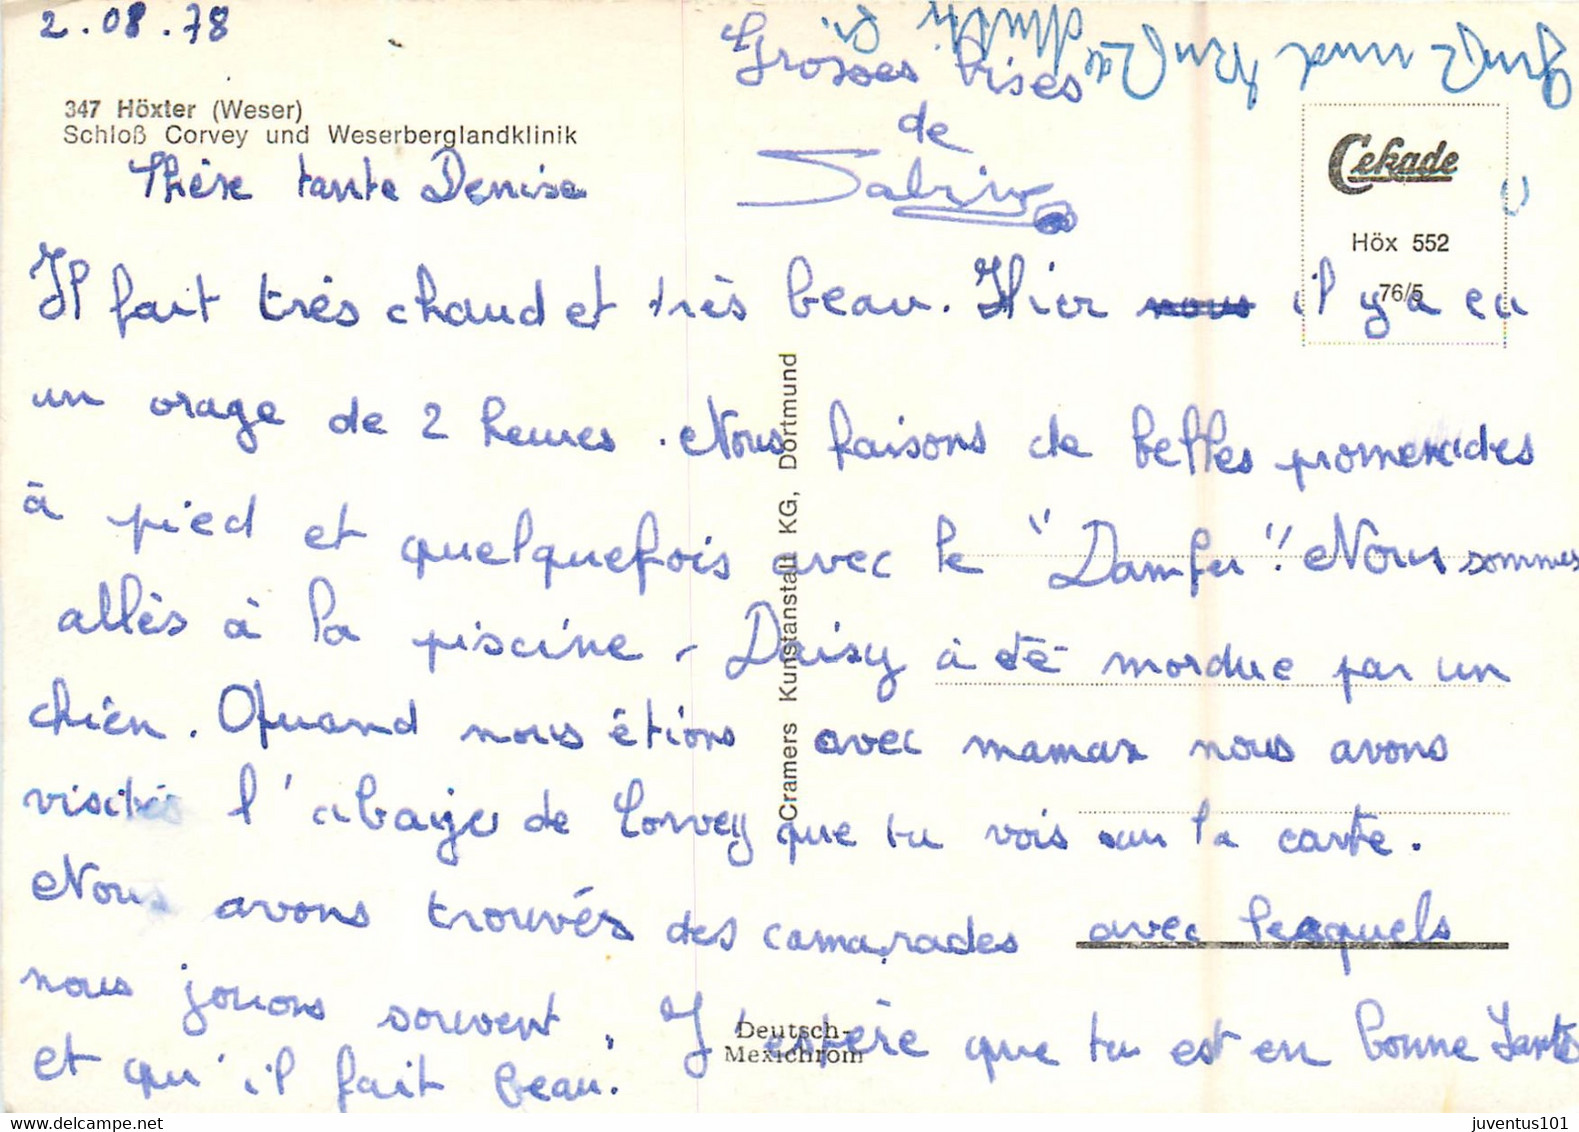 2.08.78
347 Höxter (Weser)
Schloß Corvey und Weserberglandklinik
Chère tante Denise
Il fait très chaud et très beau. Hier nous il y a eu
un orage de 2 heures. Nous faisons de belles promenades
à pied et quelquefois avec le "Dampfer". Nous sommes
allés à la piscine - Daisy à été mordue par un
chien. Quand nous étions avec maman nous avons
visités l'abaije de Corvey que tu vois sur la carte.
Nous avons trouvés des camarades avec lesquels
nous jouons souvent. J'espère que tu est en bonne santé
et qu'il fait beau.
Grosses bises
de
Sabine
Gruß und Kuß
Cekade
Höx 552
76/5
Cramers Kunstanstalt KG, Dortmund
Deutsch-
Mexichrom
juventus101